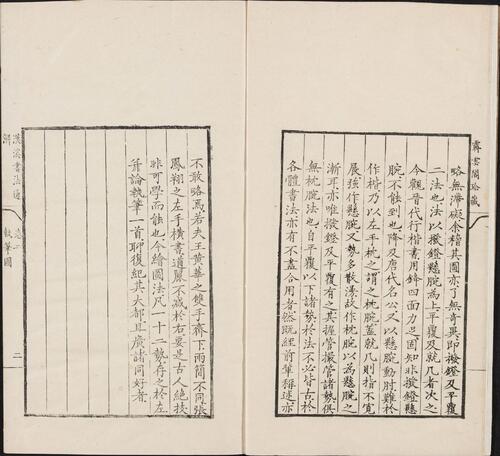 霽雲閣珍藏
略無滯礙余稽其圖亦了無奇異即撥鐙及平覆
二法也法以撥鐙懸腕為上平覆及就几者次之
今觀晉代行楷書用鋒四面力足固知非撥鐙懸
腕不能到也降及唐代名公又以懸腕動肘難於
作楷乃以左手枕之謂之枕腕蓋就几則指不寬
展強作懸腕又勢多散漫故作枕腕以為懸腕之
漸耳亦唯撥鐙及平覆有之其握管撮管諸勢俱
無枕腕法也自平覆以下諸勢於法不必皆古於
各體書法亦有不盡合用者然既經前輩稱述亦
不敢略焉若夫王黃華之雙手齊下兩簡不同張
鳳翔之左手橫書遒麗不減於右要是古人絕技
非可學而能也今繪圖法凡一十二勢存之於左
并論執筆一首聊復紀其大都且廣諸同好者
漢溪書法通解
卷二
執筆圖
二